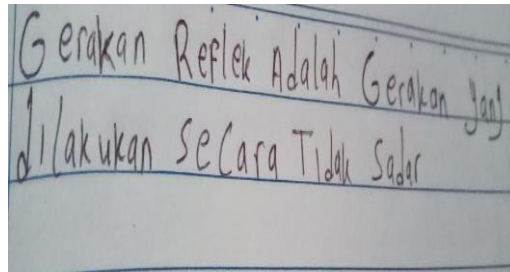 Gerakan Reflek Adalah Gerakan yang
dilakukan Secara Tidak Sadar